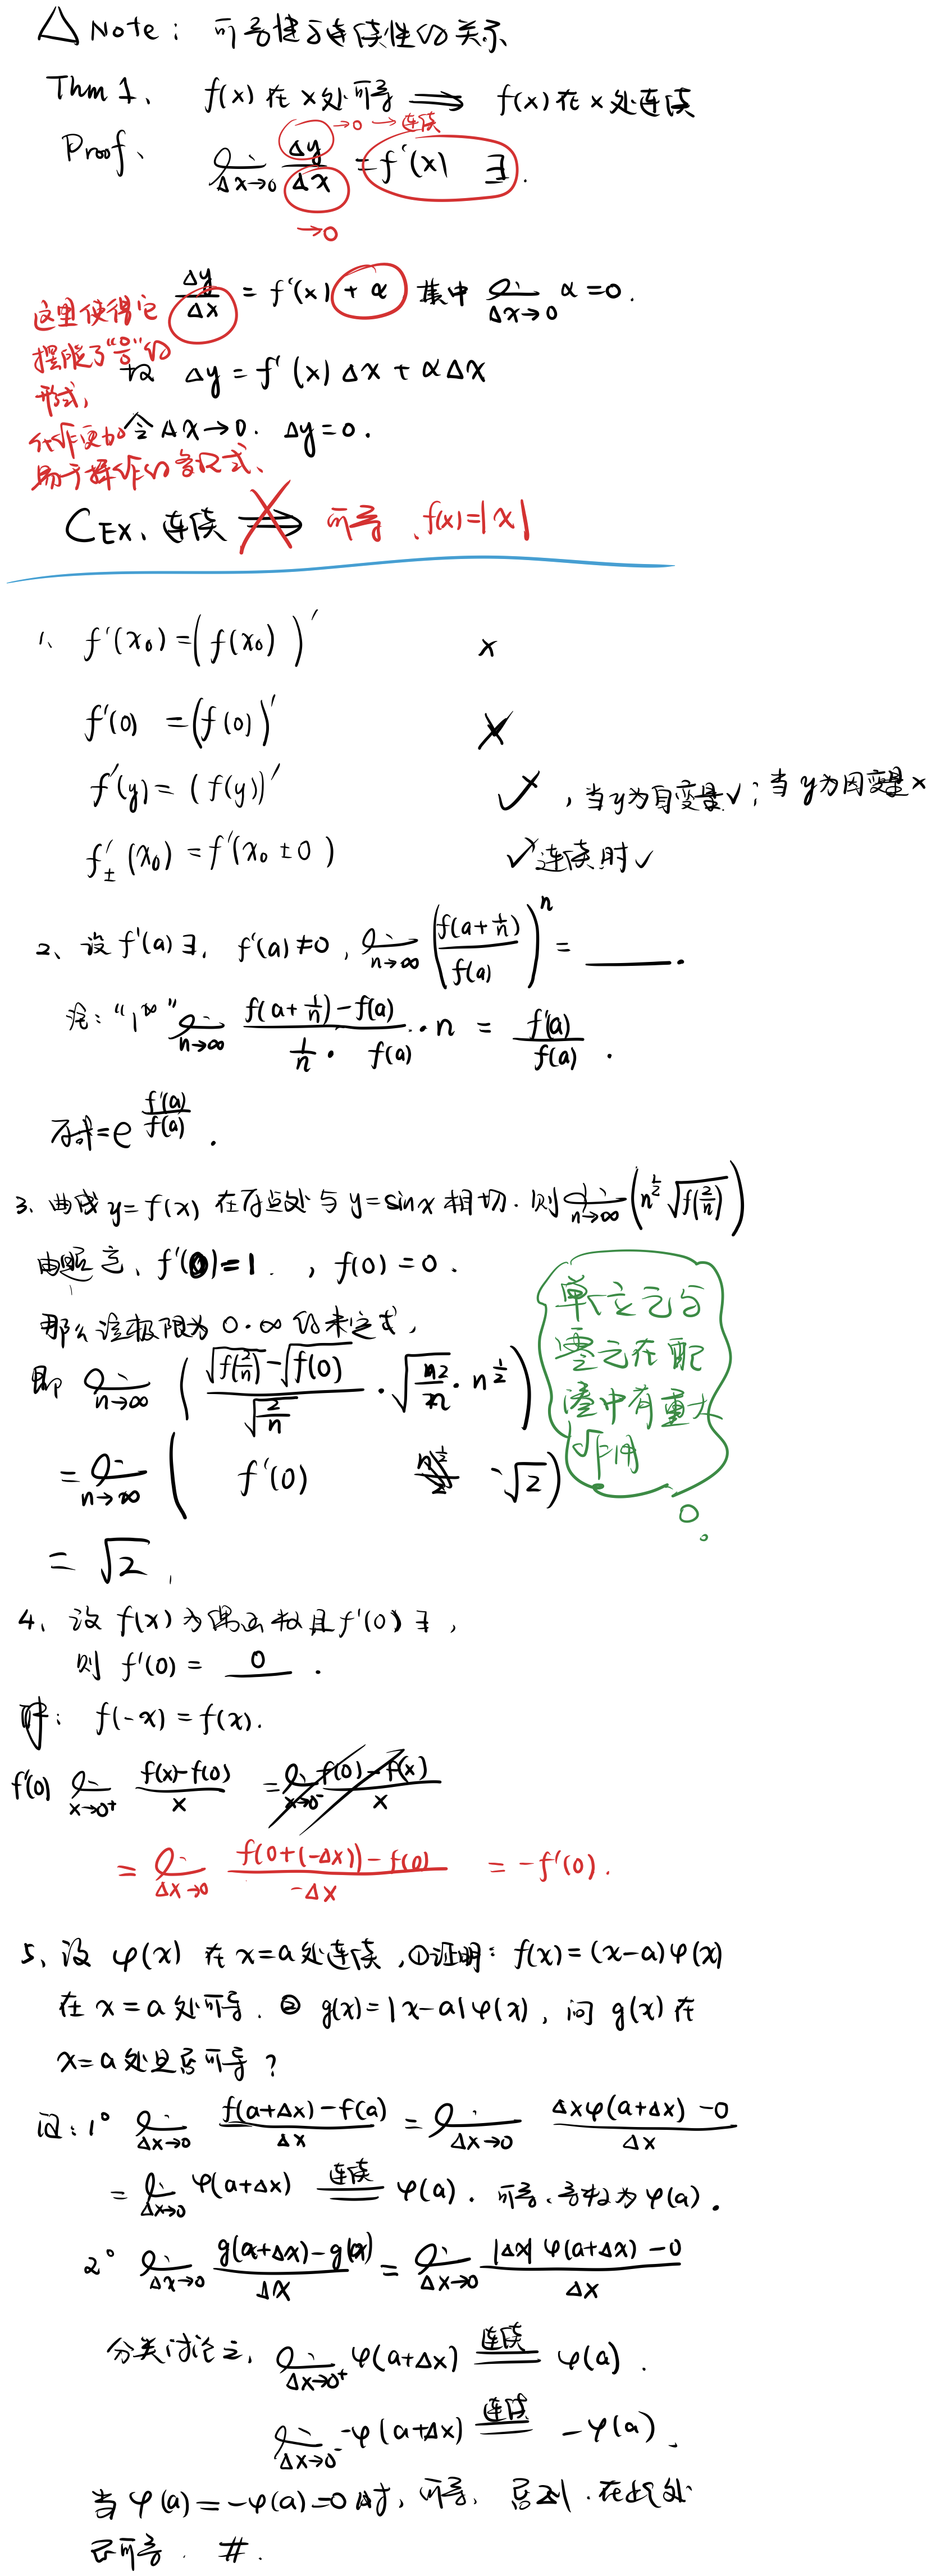 △ Note: 可导性与连续性的关系
Thm 1、 f(x) 在 x 处可导 ⟹ f(x) 在 x 处连续
→0 → 连续
Proof、 lim Δx→0 Δy/Δx = f'(x) ∃.
→0
Δy/Δx = f'(x) + α 其中 lim Δx→0 α = 0.
这里使得它
摆脱了"0/0"的
形式,
化作更加
易于操作的等式、
故 Δy = f'(x)Δx + αΔx
令 Δx→0. Δy=0.
CEX、连续 ⟹ 可导、f(x)=|x|
1、 f'(x₀) = (f(x₀))' ×
f'(0) = (f(0))' ×
f'(y) = (f(y))' ✓, 当y为自变量✓; 当y为因变量×
f'±(x₀) = f'(x₀±0) ✓连续时✓
2、设 f'(a)∃, f'(a)≠0, lim n→∞ (f(a+1/n)/f(a))ⁿ = ____.
"1^∞" lim n→∞ (f(a+1/n)-f(a))/(1/n · f(a)) · n = f'(a)/f(a).
原式=e^(f'(a)/f(a)).
3、曲线 y=f(x) 在原点处与 y=sinx 相切. 则 lim n→∞ (n^(1/2) √f(2/n))
由题意、f'(0)=1. , f(0)=0.
那么该极限为 0·∞ 的未定式,
即 lim n→∞ ((√f(2/n) - √f(0))/√(2/n) · √(2/n) · n^(1/2))
= lim n→∞ ( f'(0) · √2)
= √2.
单位元与
零元在配
凑中有重大
作用
4、设 f(x) 为偶函数且 f'(0)∃,
则 f'(0) = 0 .
解: f(-x) = f(x).
f'(0) lim x→0⁺ (f(x)-f(0))/x = lim x→0⁻ (f(0)-f(x))/x
= lim Δx→0 (f(0+(-Δx))-f(0))/(-Δx) = -f'(0).
5、设 φ(x) 在 x=a 处连续, ①证明: f(x)=(x-a)φ(x)
在 x=a 处可导. ② g(x)=|x-a|φ(x), 问 g(x) 在
x=a 处是否可导?
证: 1° lim Δx→0 (f(a+Δx)-f(a))/Δx = lim Δx→0 (Δxφ(a+Δx)-0)/Δx
= lim Δx→0 φ(a+Δx) 连续= φ(a). 可导、导数为 φ(a).
2° lim Δx→0 (g(a+Δx)-g(a))/Δx = lim Δx→0 (|Δx|φ(a+Δx)-0)/Δx
分类讨论之, lim Δx→0⁺ φ(a+Δx) 连续= φ(a).
lim Δx→0⁻ -φ(a+Δx) 连续= -φ(a).
当 φ(a)=-φ(a)=0 时, 可导, 否则. 在此处
不可导. #.